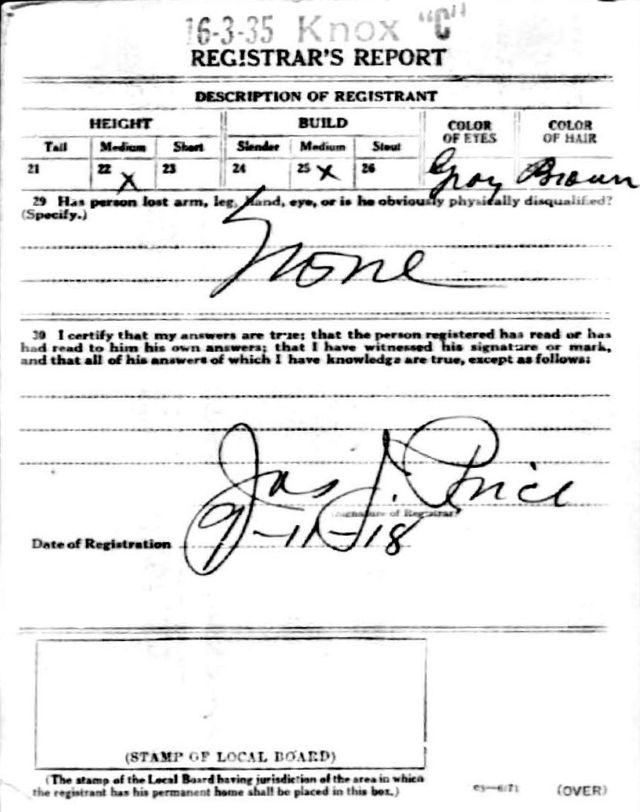 16-3-35 Knox "C"
REGISTRAR'S REPORT
DESCRIPTION OF REGISTRANT
HEIGHT BUILD COLOR OF EYES COLOR OF HAIR
Tall Medium Short Slender Medium Stout
21 22 X 23 24 25 X 26 Gray Brown
29 Has person lost arm, leg, hand, eye, or is he obviously physically disqualified?
(Specify.)
None
30 I certify that my answers are true; that the person registered has read or has
had read to him his own answers; that I have witnessed his signature or mark,
and that all of his answers of which I have knowledge are true, except as follows:
Jas Price
(Signature of Registrar)
Date of Registration 9-11-18
(STAMP OF LOCAL BOARD)
(The stamp of the Local Board having jurisdiction of the area in which
the registrant has his permanent home shall be placed in this box.)
(OVER)